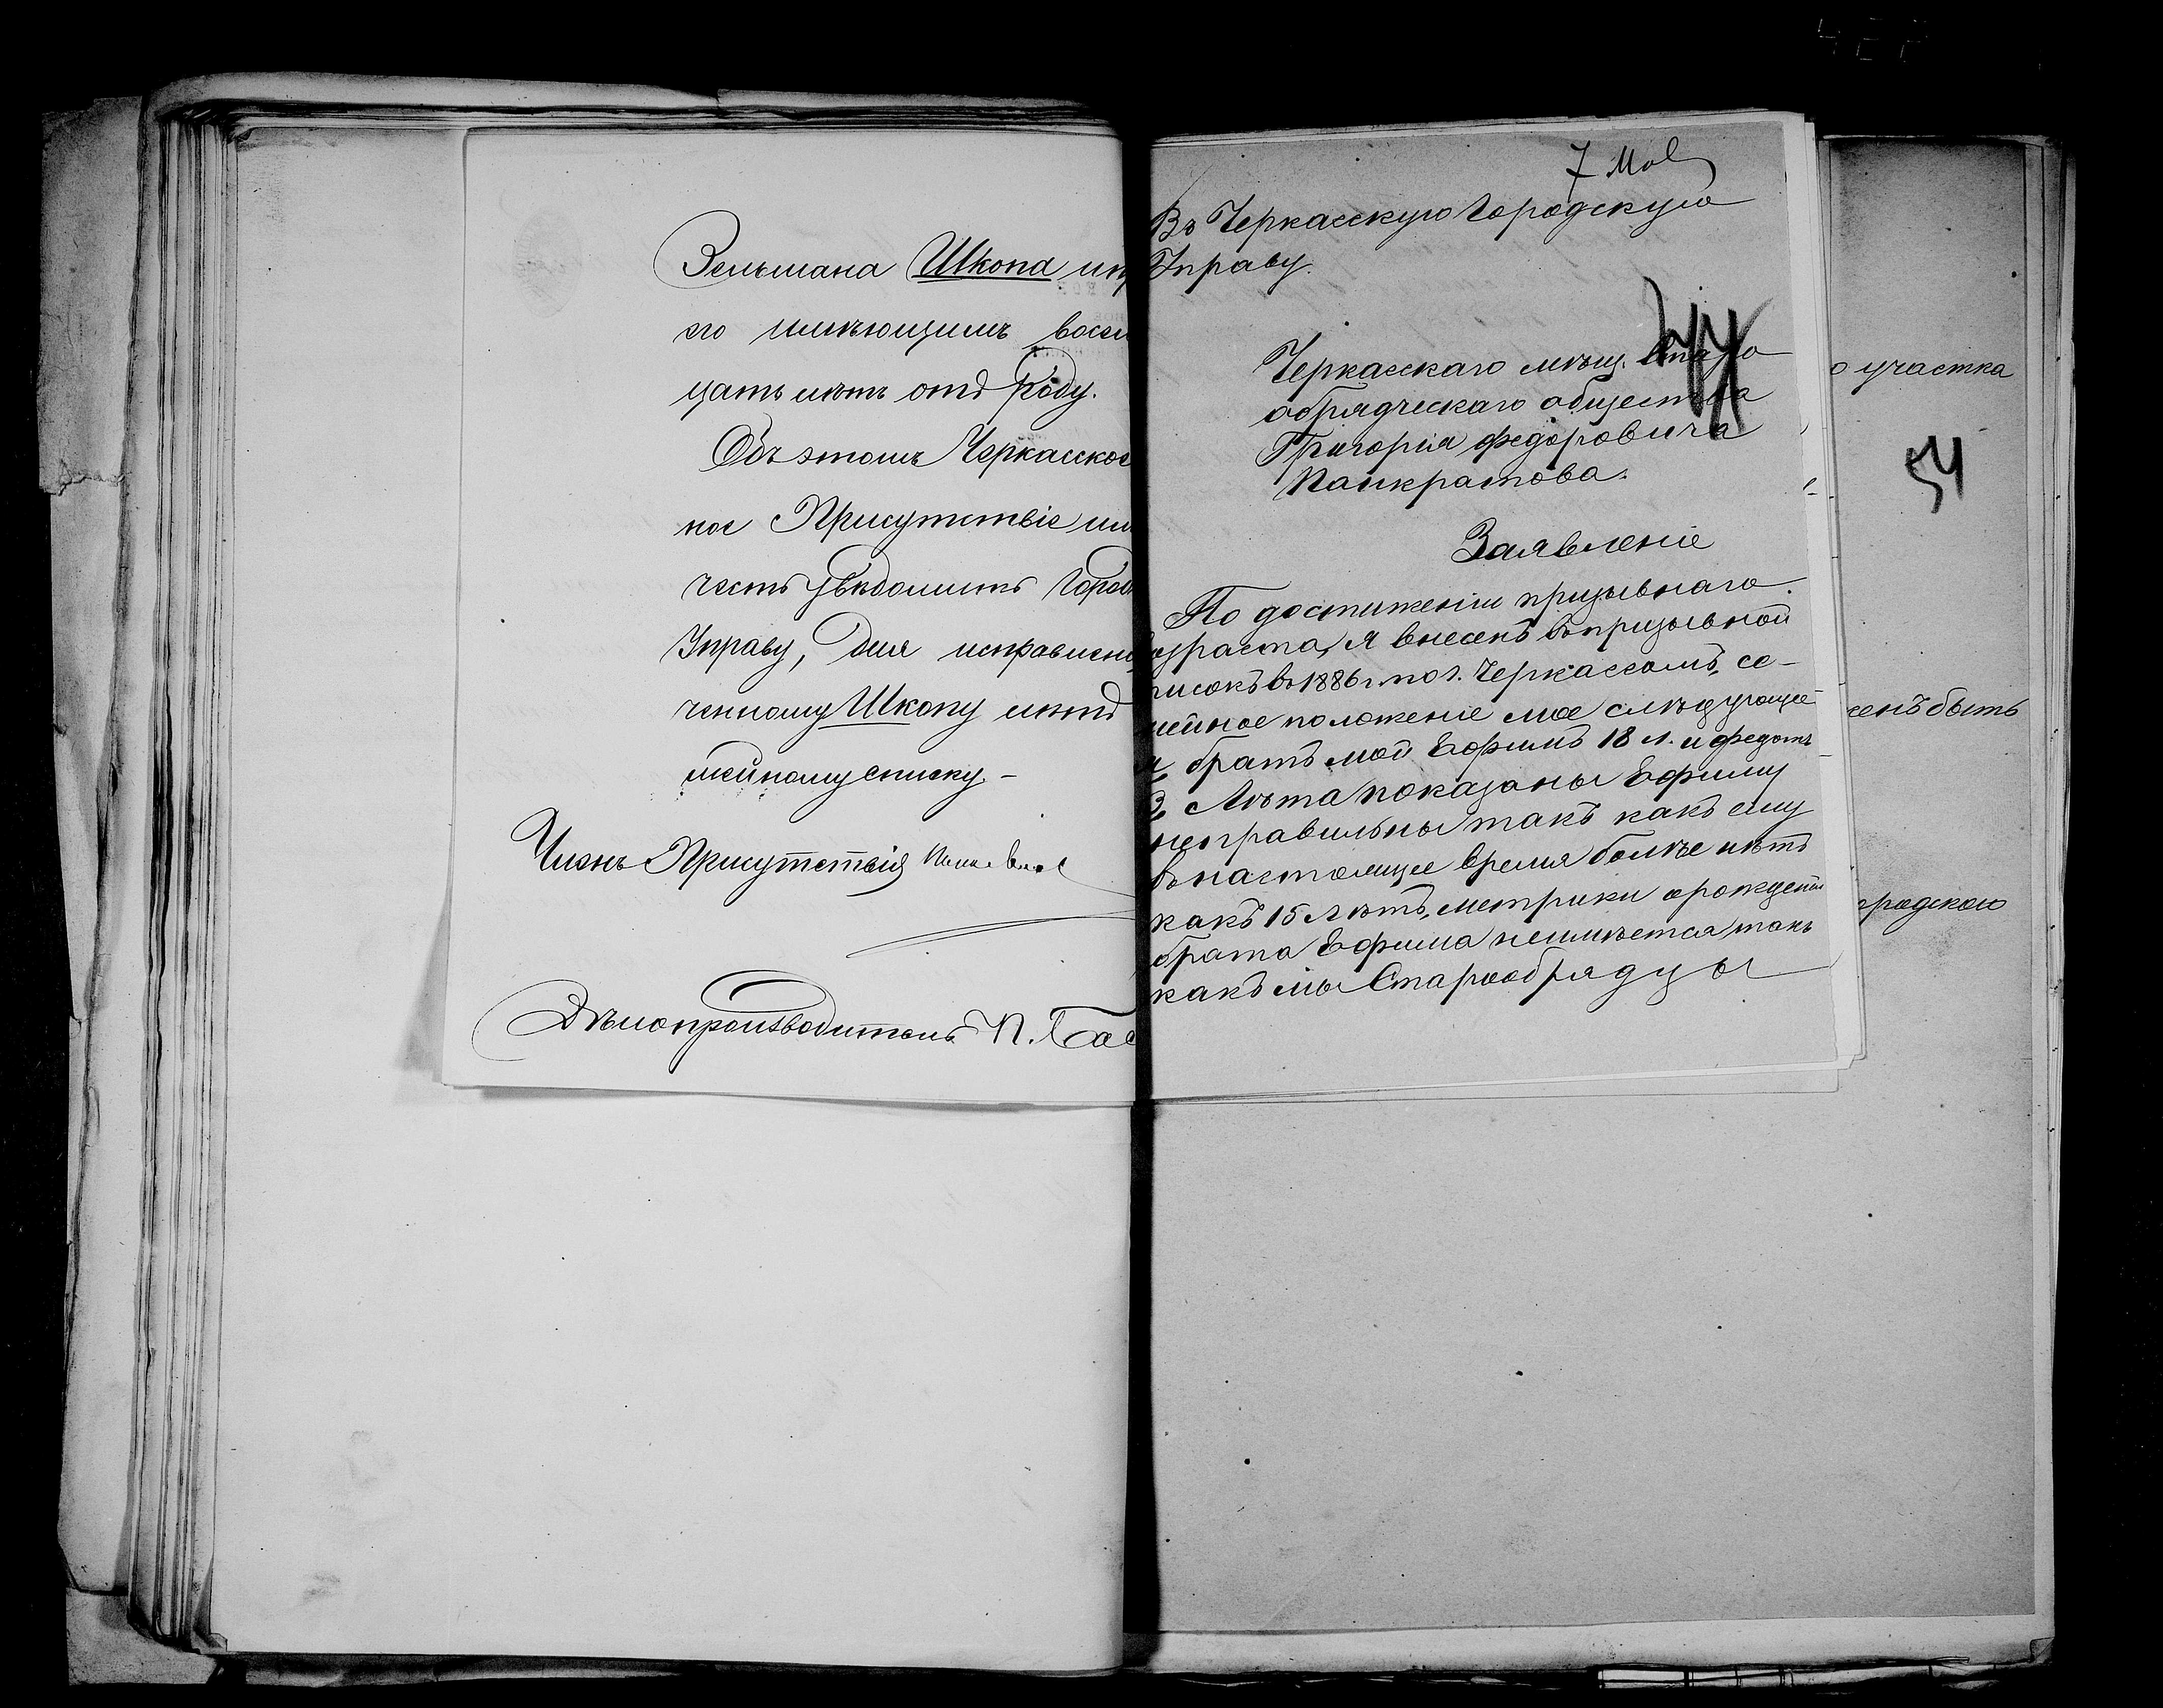 Зельмана Школа
его имѣющимъ восем
цать лѣтъ отъ роду.
Объ этомъ Черкасское
ное Присутствіе им
честь увѣдомить Город
Управу, для исправлені
ченному Школу лѣтъ
мейному списку. –
Членъ Присутствія
Дѣлопроизводитель П. Бас
7 Мая
Въ Черкасскую Городскую
Управу.
Черкасскаго мѣщ. Старо
обрядческаго общества
Григорія Федоровича
Панкратова.
Заявленіе
По достиженіи призывнаго
озраста, я внесенъ въ призывной
писокъ въ 1886 г. по г. Черкассамъ, се-
мейное положеніе мое слѣдующее
братъ мой Ефимъ 18 л. и Федотъ
Лѣта показаны Ефиму
неправильны такъ какъ ему
въ настоящее время болѣе нѣтъ
какъ 15 лѣтъ, метрики о рожденіи
брата Ефима неимѣется такъ
какъ мы Старообрядцы
о участка
54
женъ быть
ородскою